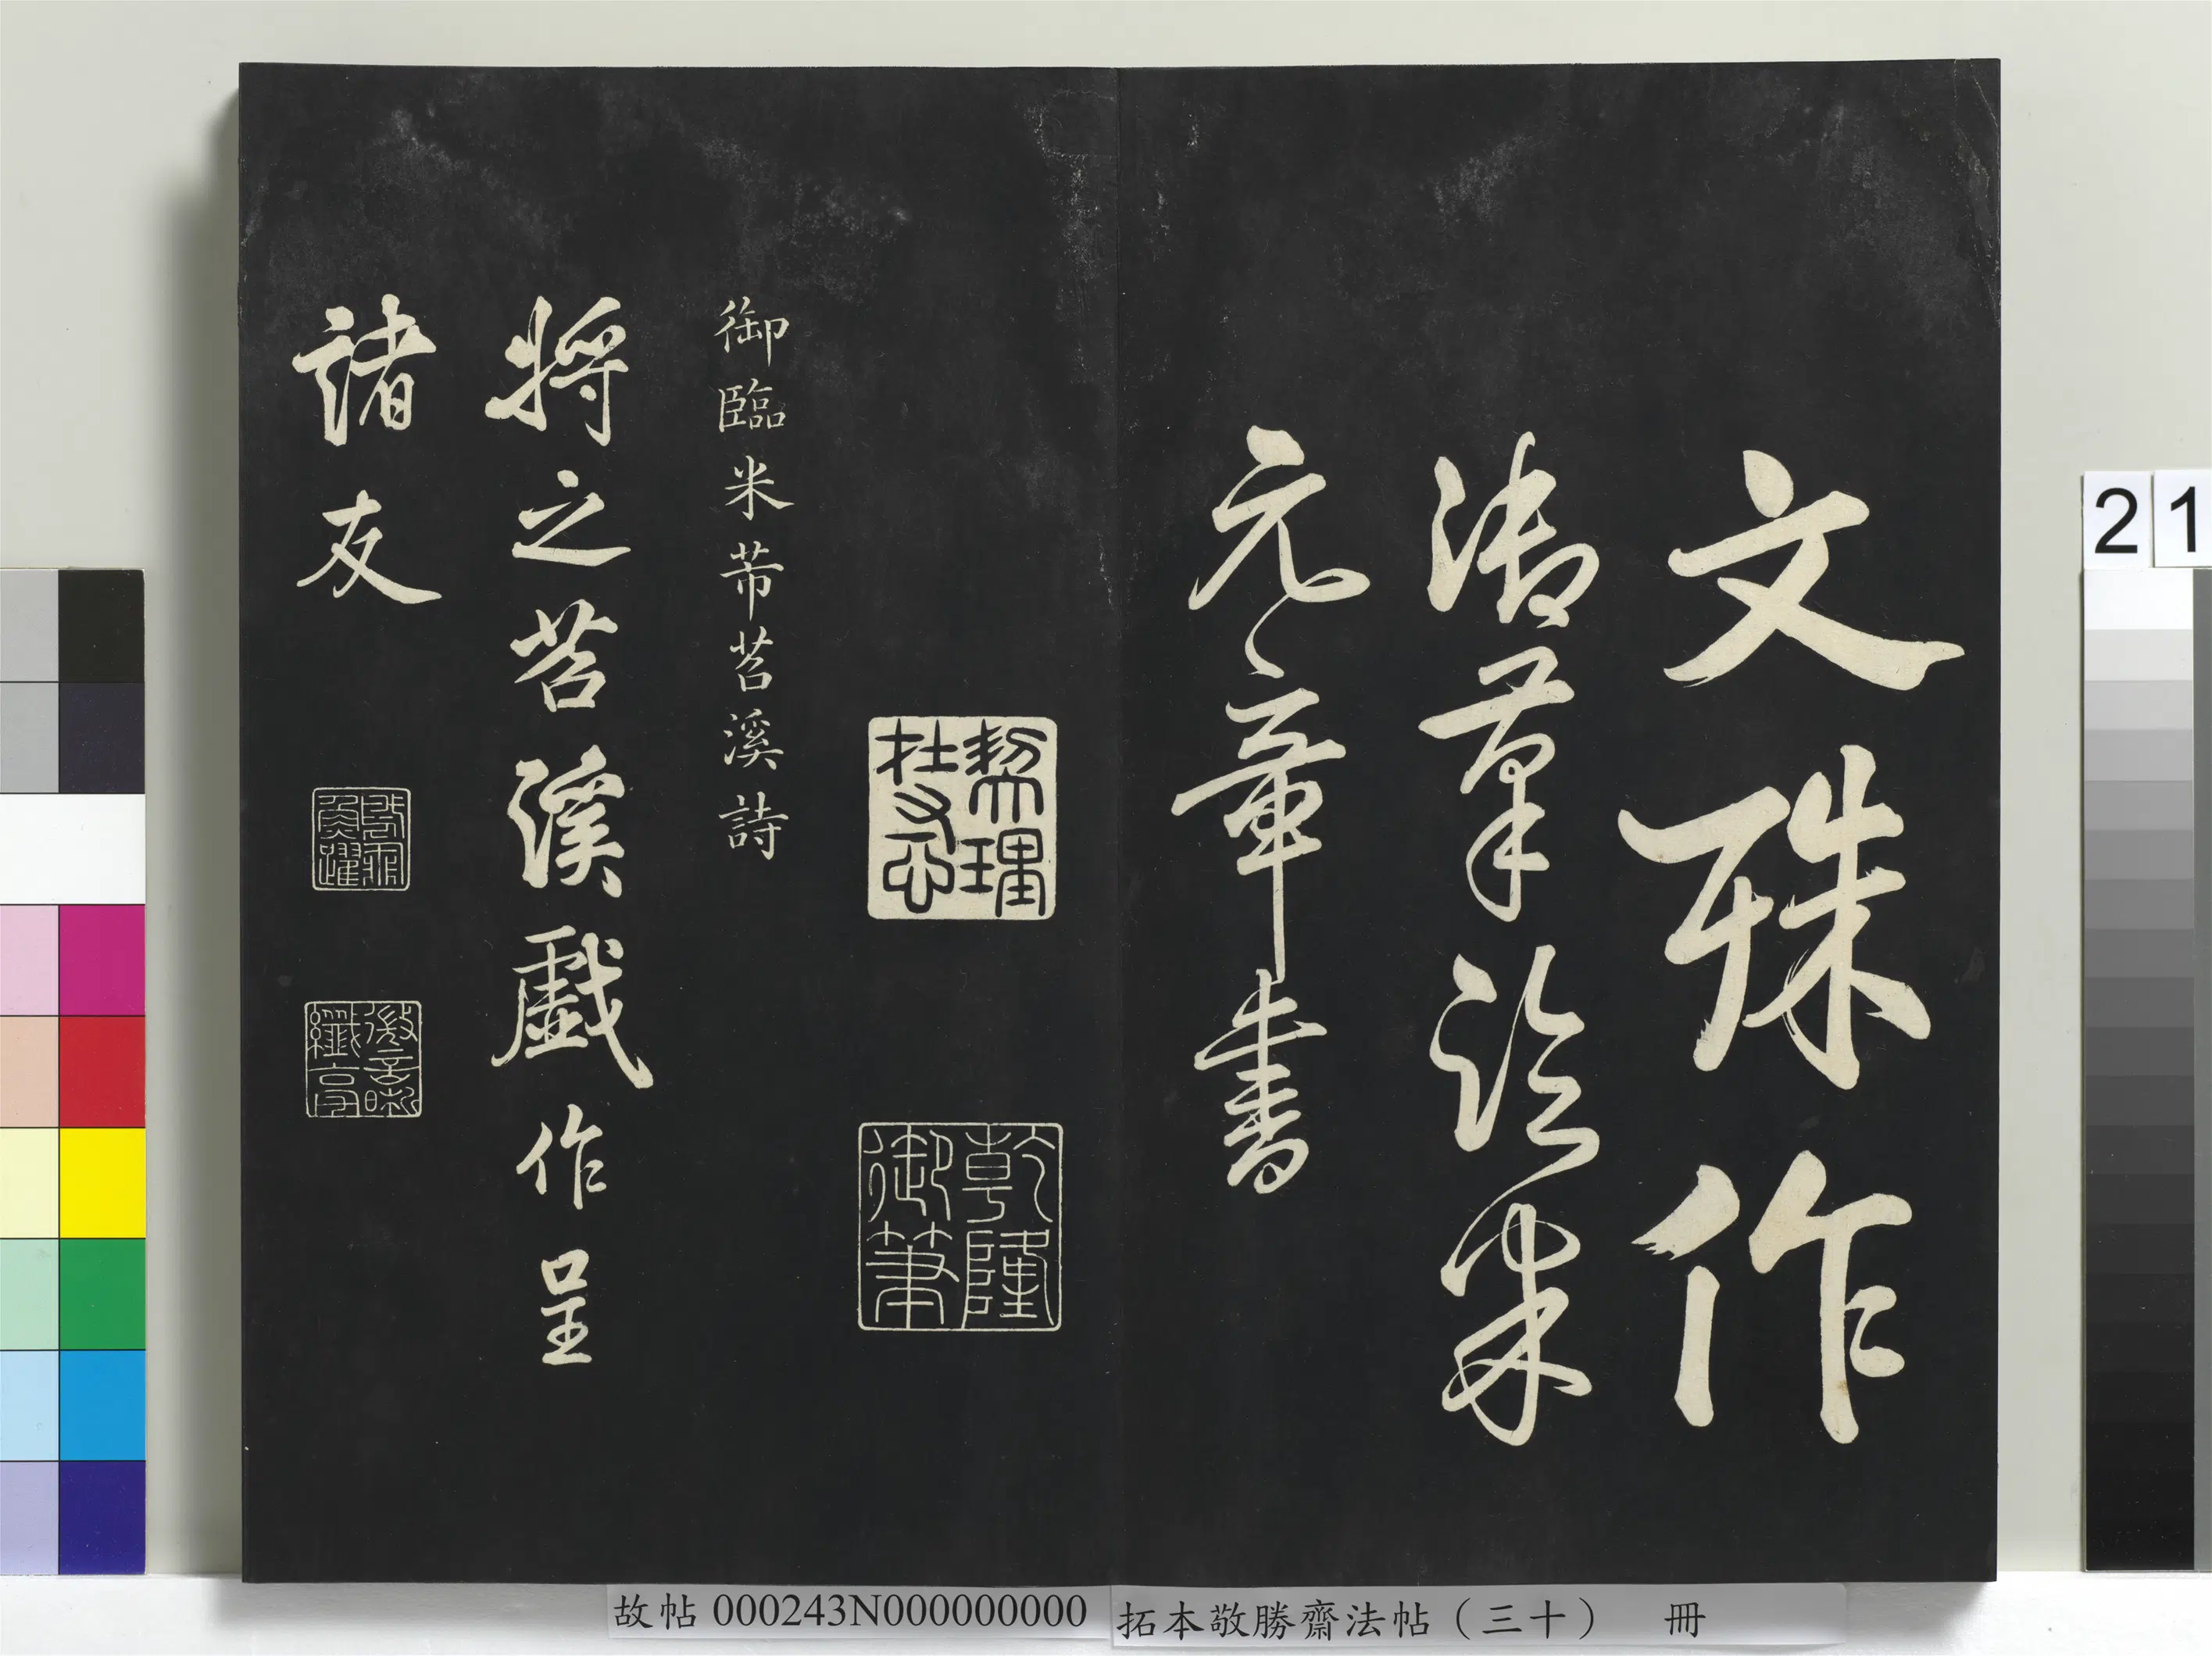 文殊作
御筆臨米
元章書
乾隆
御筆
御臨米芾苕溪詩
將之苕溪戲作呈
諸友
21
故帖 000243N000000000
拓本敬勝齋法帖（三十）　冊